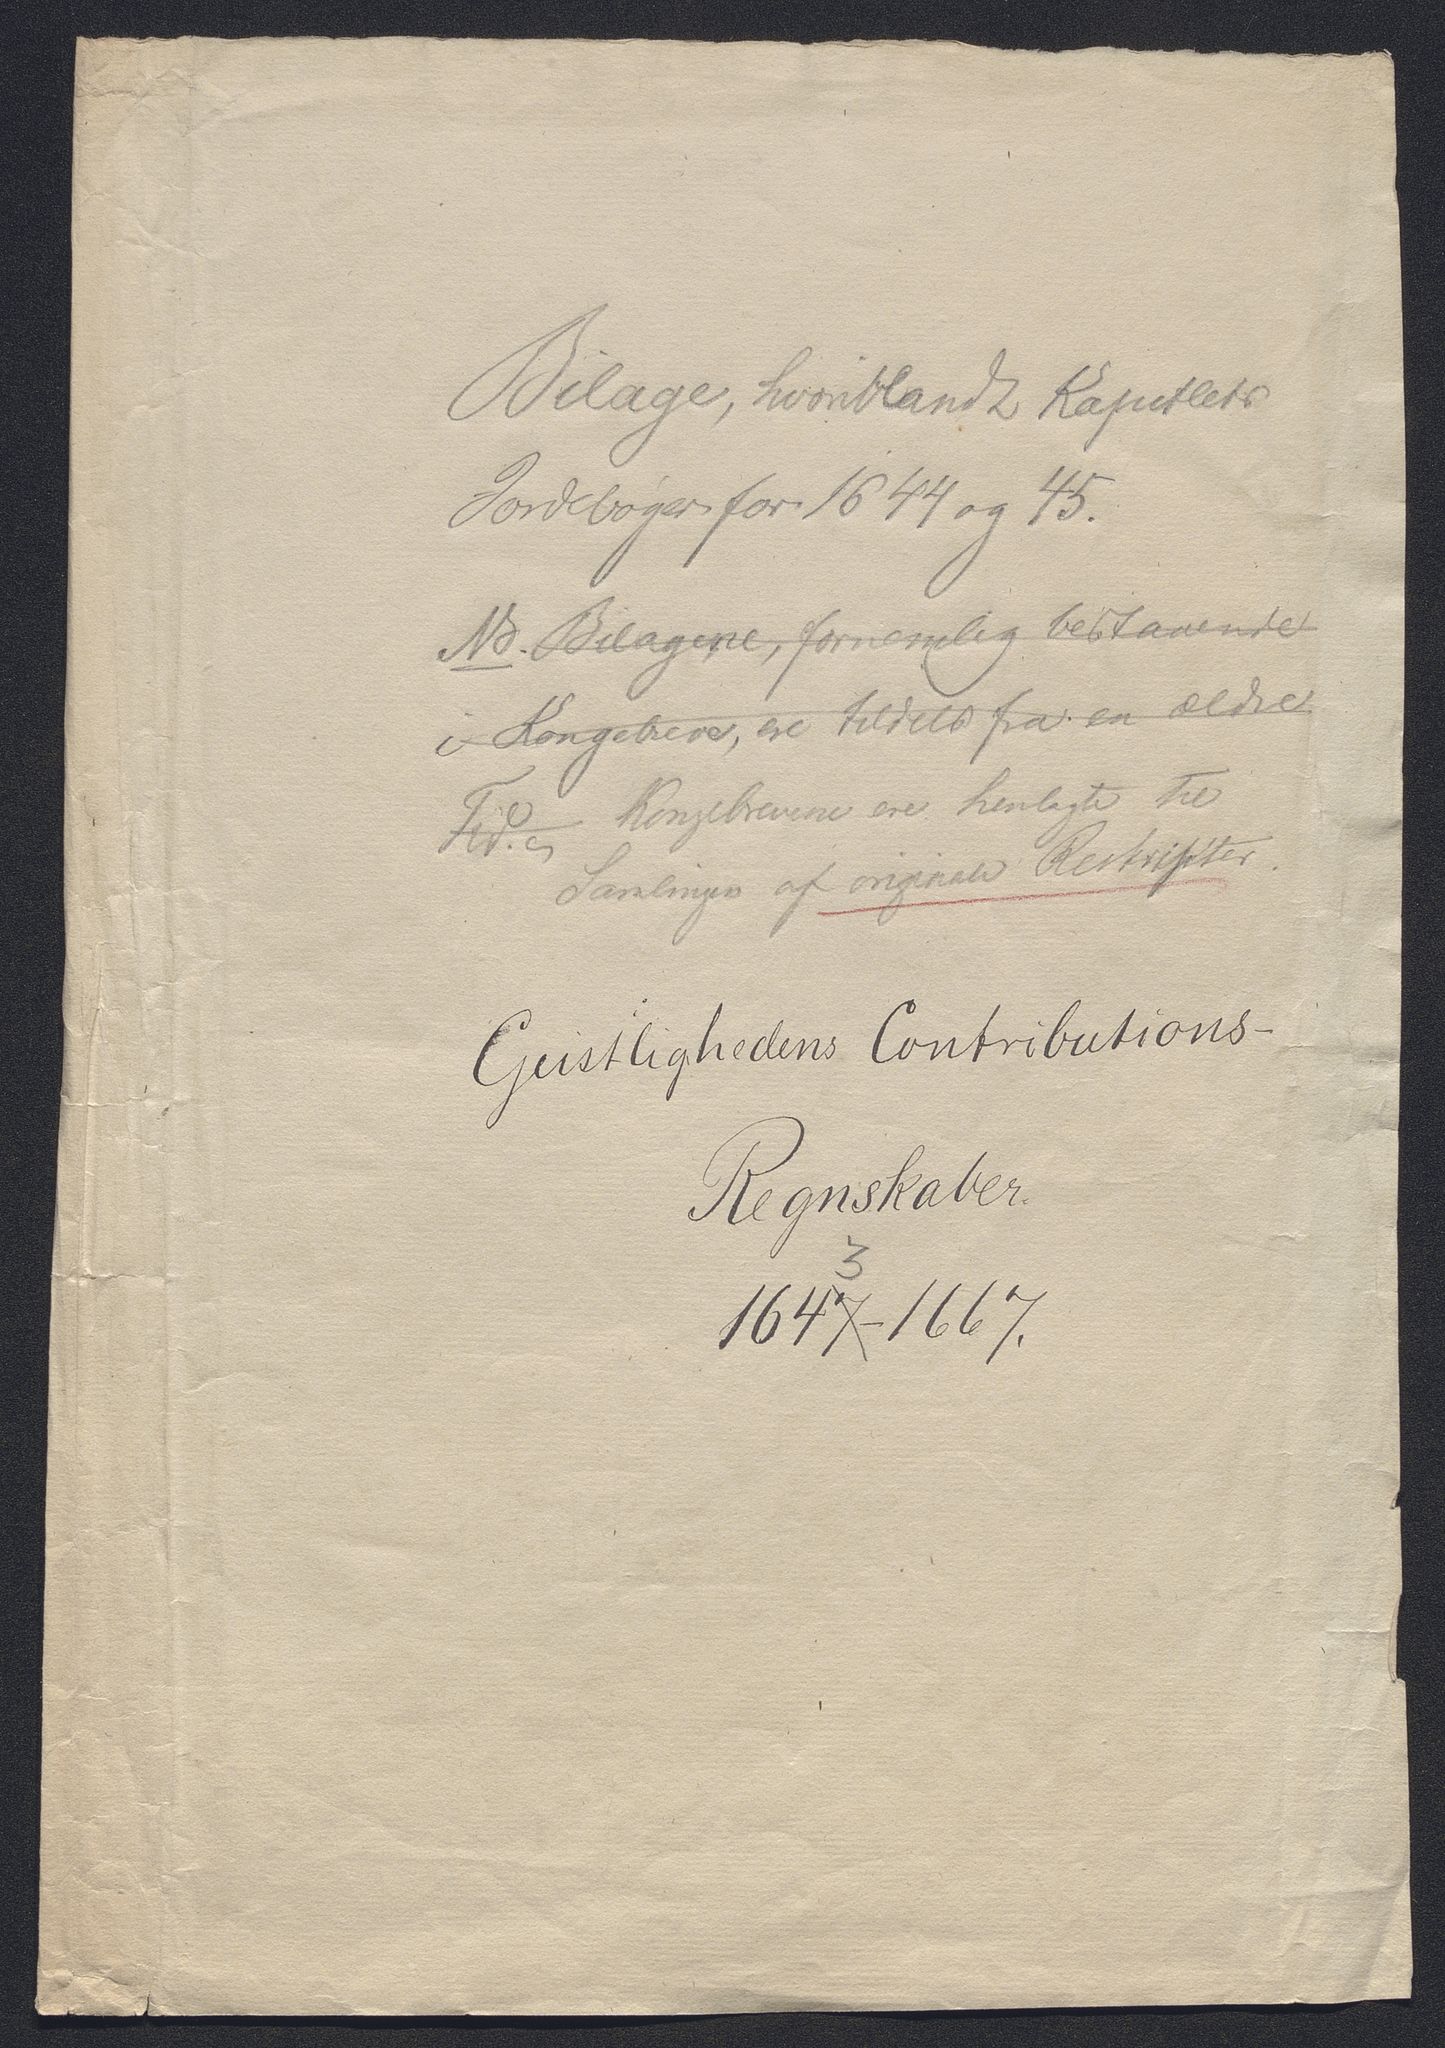 Bilage, hvoriblandt Kapitlets
Jordebøger for 1644 og 45.
NB. Bilagene, fornemlig bestaaende
i Kongebreve, ere tildels fra en ældre
Tid. Kongebrevene ere henlagte til
Samlingen af originale Restripter.
Geistlighedens Contributions-
Regnskaber.
3
1647-1667.